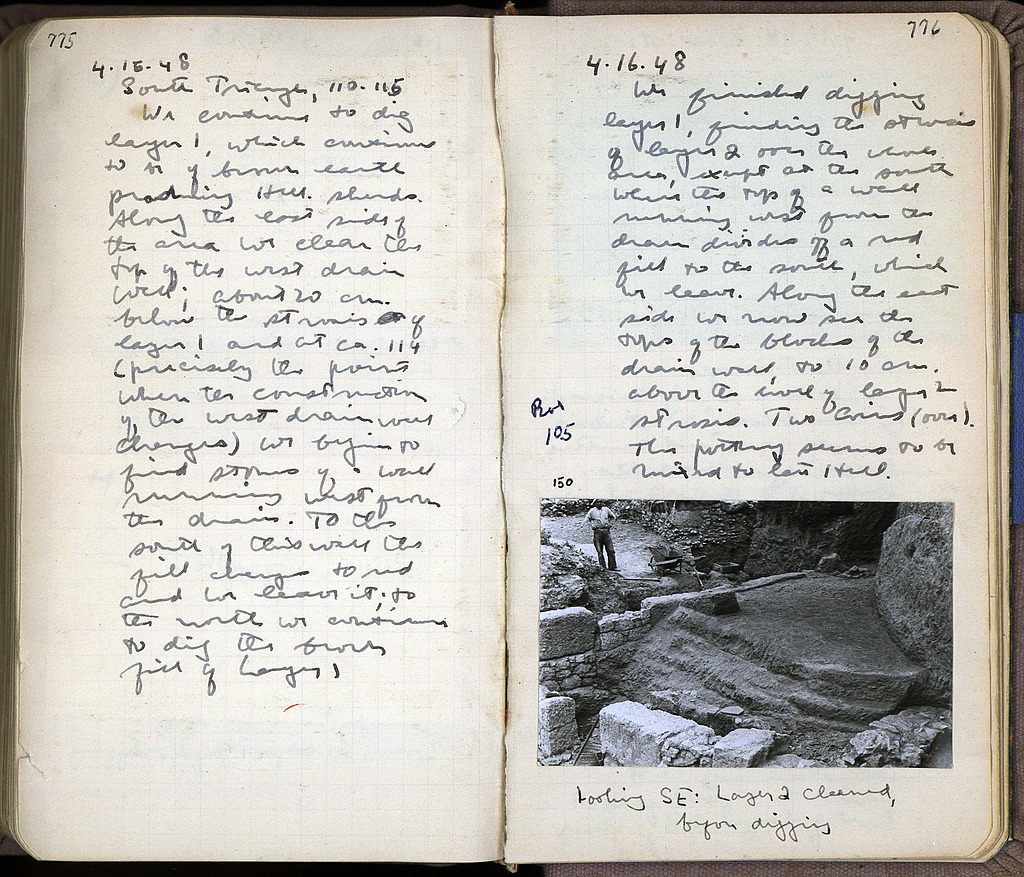 775
4.15.48
South Triangle, 110-115
We continue to dig
layer 1, which continues
to be of brown earth
producing Hell. sherds.
Along the east side of
the area we clear the
top of the west drain
wall, about 20 cm.
below the strosis of
layer 1 and at ca. 114
(precisely the point
where the construction
of the west drain wall
changes) we begin to
find stones of a wall
running west from
the drain. To the
south of this wall the
fill changes to red
and we leave it; to
the north we continue
to dig the brown
fill of Layer 1
776
4.16.48
We finished digging
layer 1, finding the strosis
of layer 2 over the whole
area, except at the south
where the top of a wall
running west from the
drain divides off a red
fill to the south, which
we leave. Along the east
side we now see the
tops of the blocks of the
drain wall, to 10 cm.
above the level of layer 2
strosis. Two Coins (over).
The pottery seems to be
mixed to late Hell.
Box
105
150
Looking SE: Layer 2 cleaned,
before digging